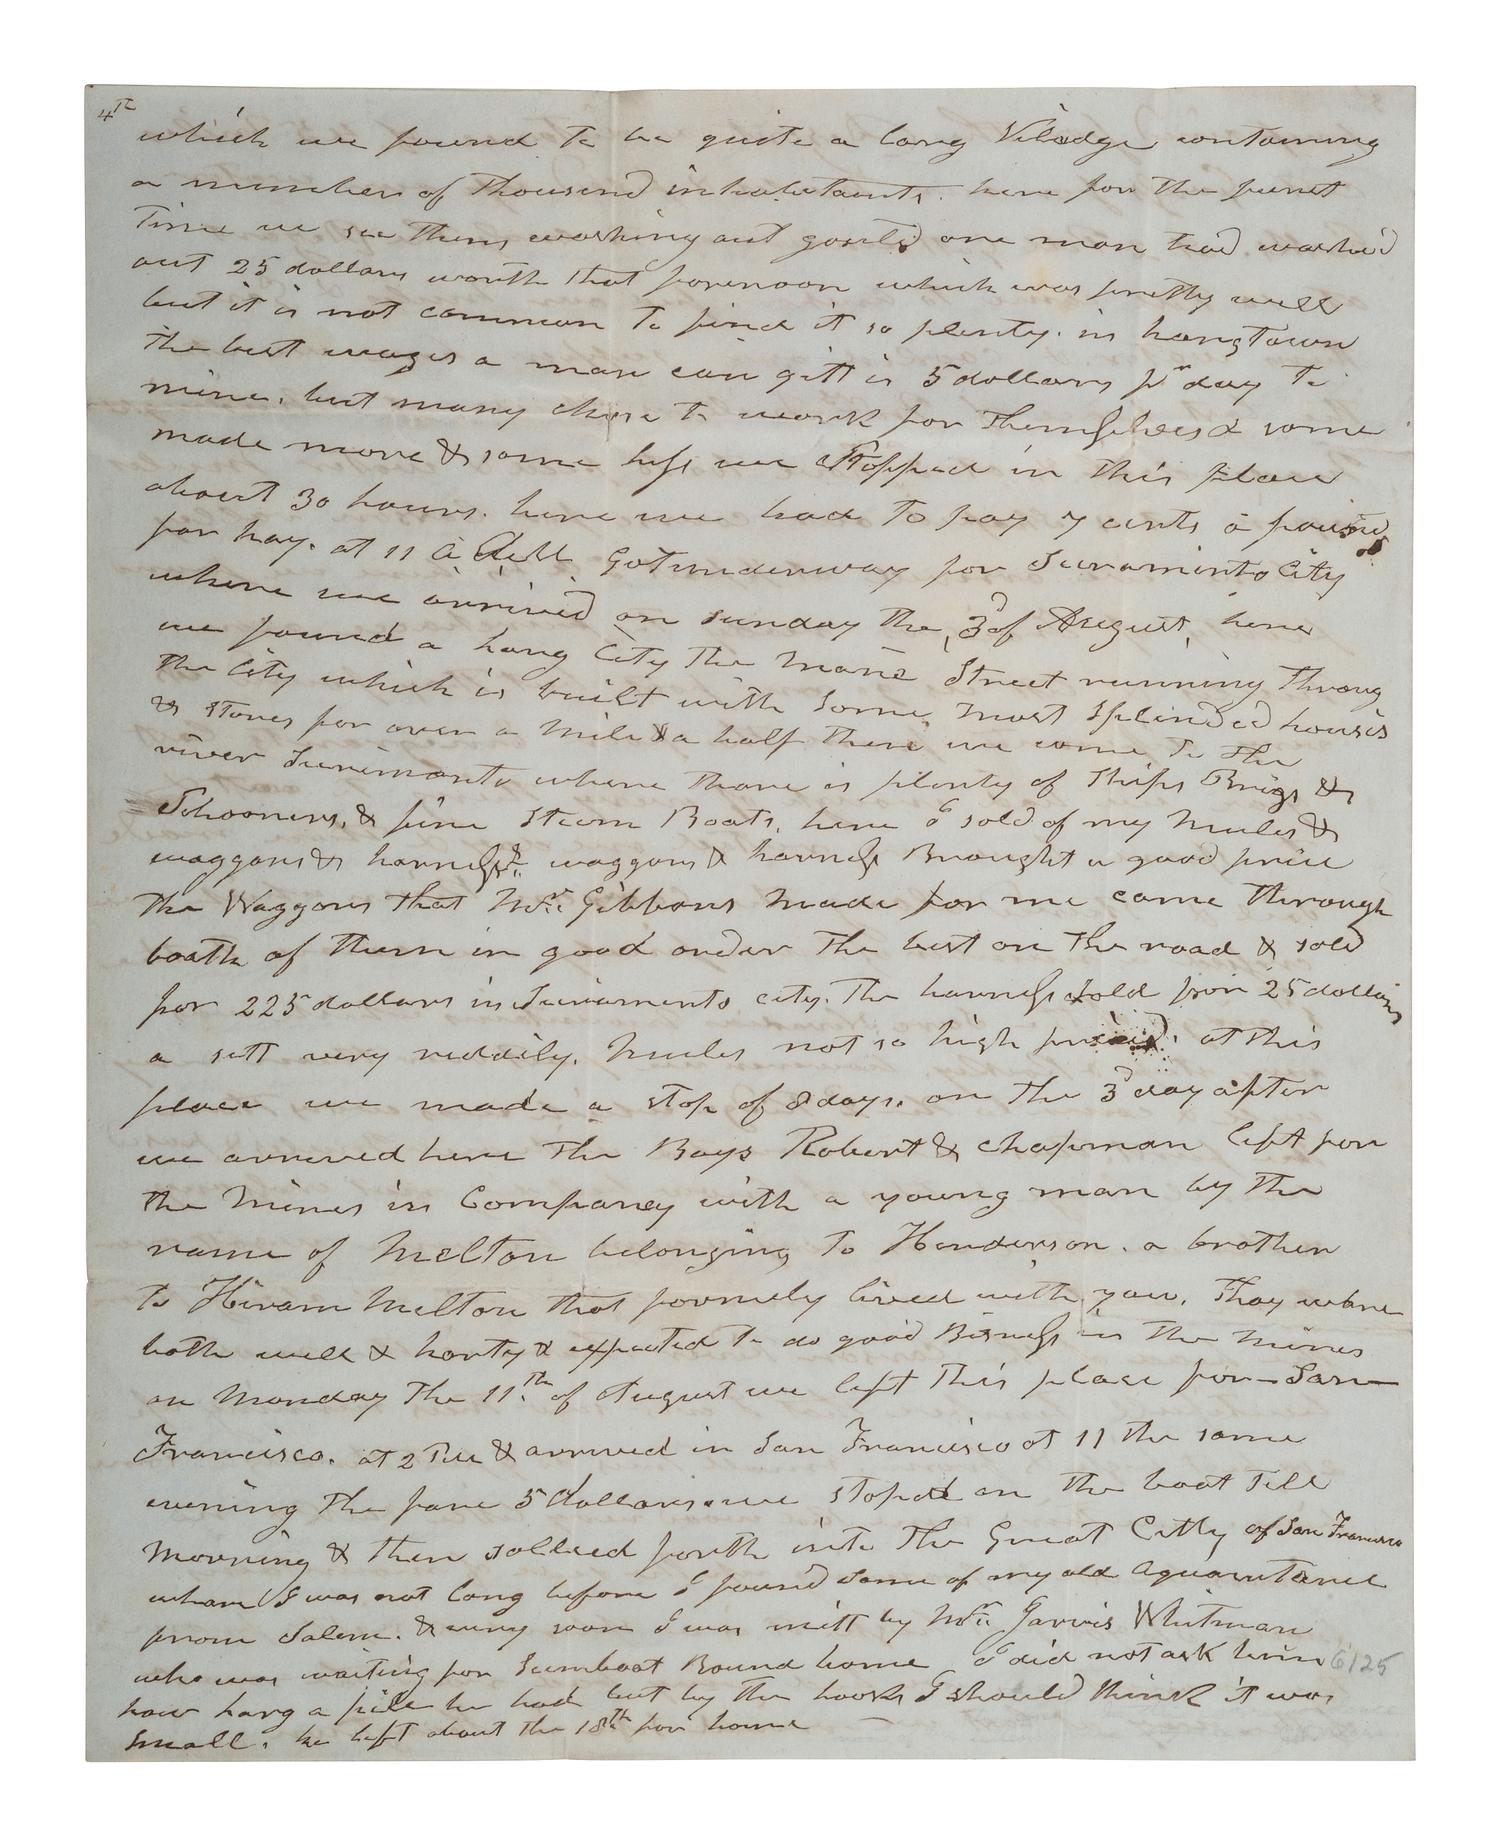 4th
which we found to be quite a larg Viladge containing
a number of thousand inhabitants. here for the furst
time we see them washing out gould one man had washed
out 25 dollars worth that forenoon which was pretty well
but it is not common to find it so plenty. in hangtown
the best wages a man can gitt is 5 dollars pr day to
mine. but many chose to work for themselves & some
made more & some less we stopped in this place
about 30 hours. here we had to pay 7 cents a pound
for hay. at 11 a Clk Got underway for Sacramento City
where we arrived on sunday the 3d of August, here
we found a larg City the mane Street running throug
the City which is built with some most splended houses
& stores for over a mile & a half then we come to the
river Sacrimento where thare is plenty of Ships Brigs &
Schooners, & fine Steem Boats, here I sold of my mules &
waggons & harness. waggons & harness Brought a good price
the Waggons that Mr. Gibbons made for me came through
boath of them in good order the best on the road & sold
for 225 dollars in Sacramento city. The harness sold for 25 dollars
a sett very reddily. Mules not so high priced. at this
place we made a stop of 8 days. on the 3d day after
we arrived here the Boys Robert & Chapman left for
the Mines in Company with a young man by the
name of Melton belonging to Henderson. a brother
to Hiram Melton that formely lived with you. They where
both well & harty & expected to do good Bisness in the mines
on Monday the 11th of August we left this place for San
Francisco. at 2 PM & arrived in San Francisco at 11 the same
evening the fare 5 dollars. we stoped on the boat till
Morning & then sallied forth into the Great Citty of San Francisco
whare I was not long before I found some of my old aquaintance
from Salem. & very soon I was mitt by Mr. Jarvis Whitman
who was waiting for Steemboat Bound home I did not ask him
6125
how larg a pile he had but by the looks I should think it was
small. he left about the 18th for home